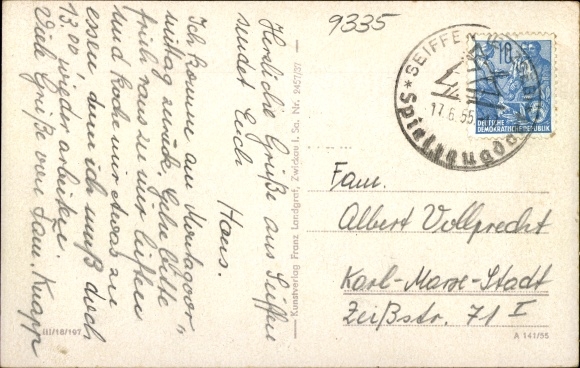 9335
Herzliche Grüße aus Seiffen
sendet Euch
Hans.
Ich komme am Montagvor,
mittag zurück.
früh raus zu mir
und koche mir etwas zu
essen denn ich muß doch
13.00 wieder arbeiten.
Viele Grüße von Fam. Knapp
III/18/197
Kunstverlag Franz Landgraf, Zwickau i. Sa.
* SEIFFE
17.6.55
* Spielzeugdo
10
DEUTSCHE
DEMOKRATISCHE REPUBLIK
Fam.
Albert Vollprecht
Karl-Marx-Stadt
Zeißstr. 71 I
A 141/55